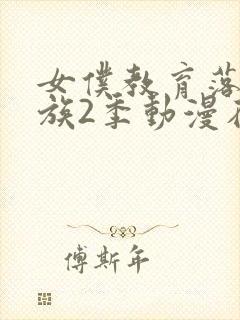 女僕教育落
族2季動漫在
傅斯年